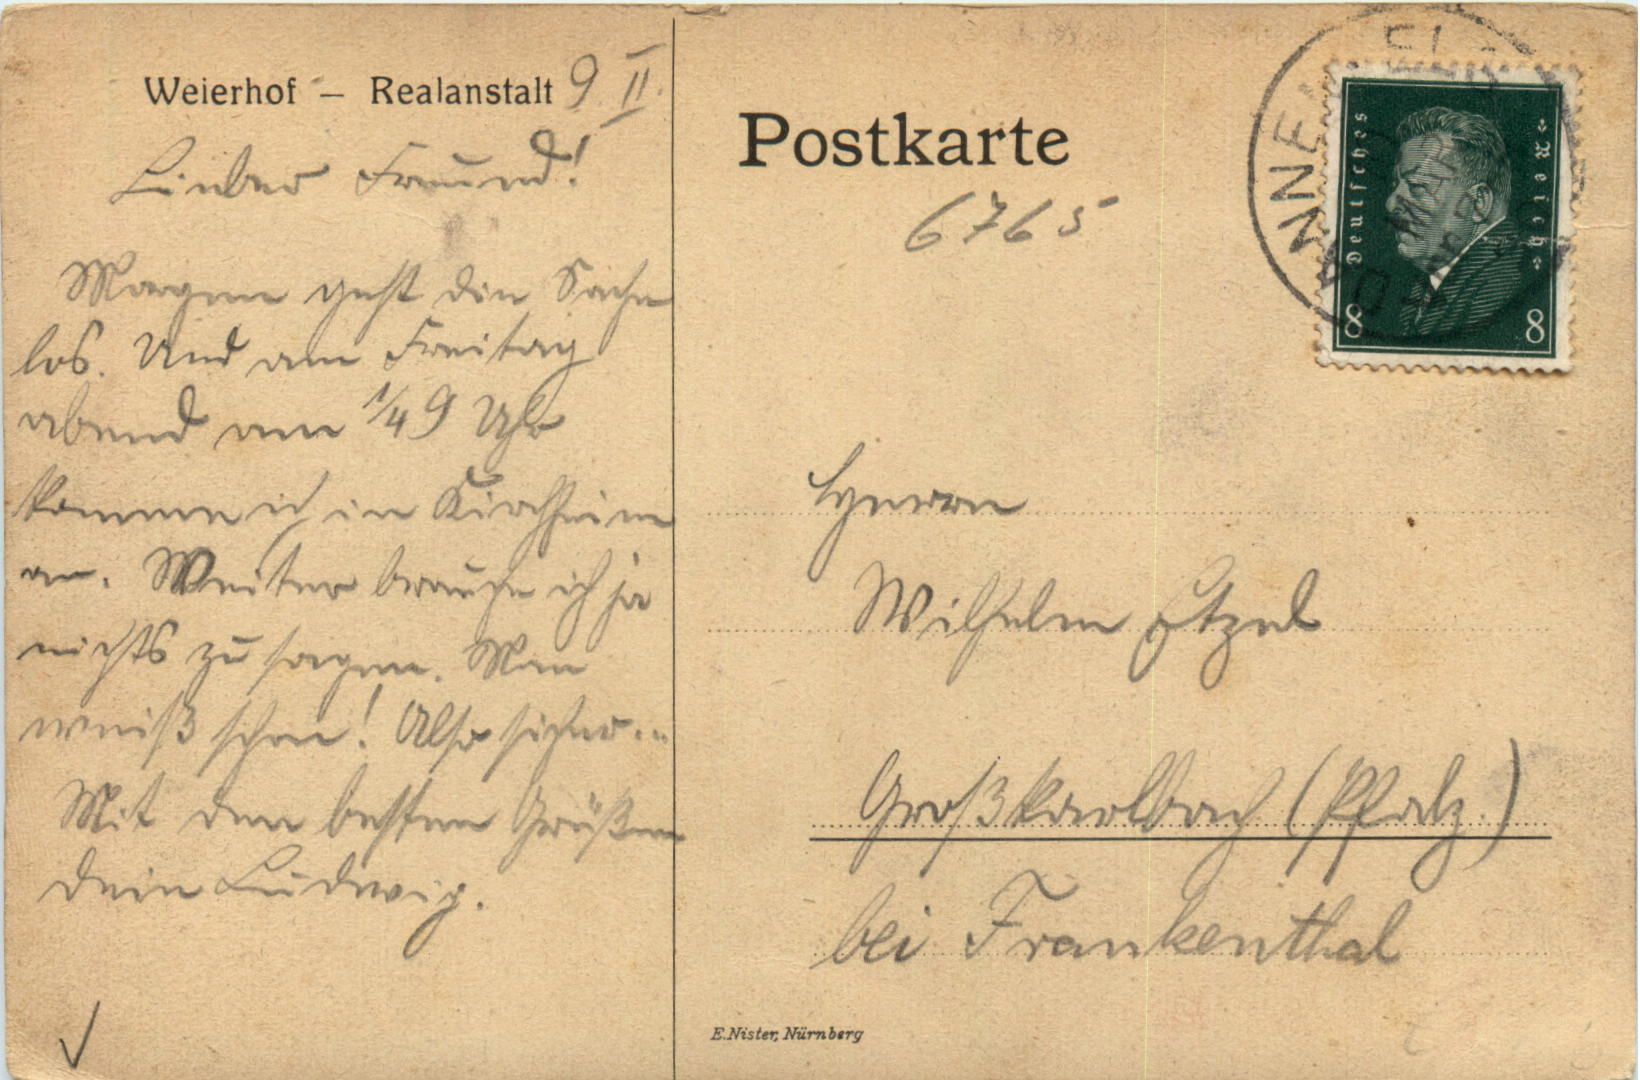 Weierhof – Realanstalt 9. II.
Lieber Freund!
Morgen geht die Sache
los. Und am Freitag
abend um 1/4 9 Uhr
komme ich in Kirchheim
an. Weiter brauche ich ja
nichts zu sagen. Man
weiß schon! Also sicher...
Mit den besten Grüßen
dein Ludwig.
Postkarte
6765
Deutsches Reich
8 8
Herrn
Wilhelm Etzel
Großkarlbach (Pfalz.)
bei Frankenthal
E. Nister, Nürnberg